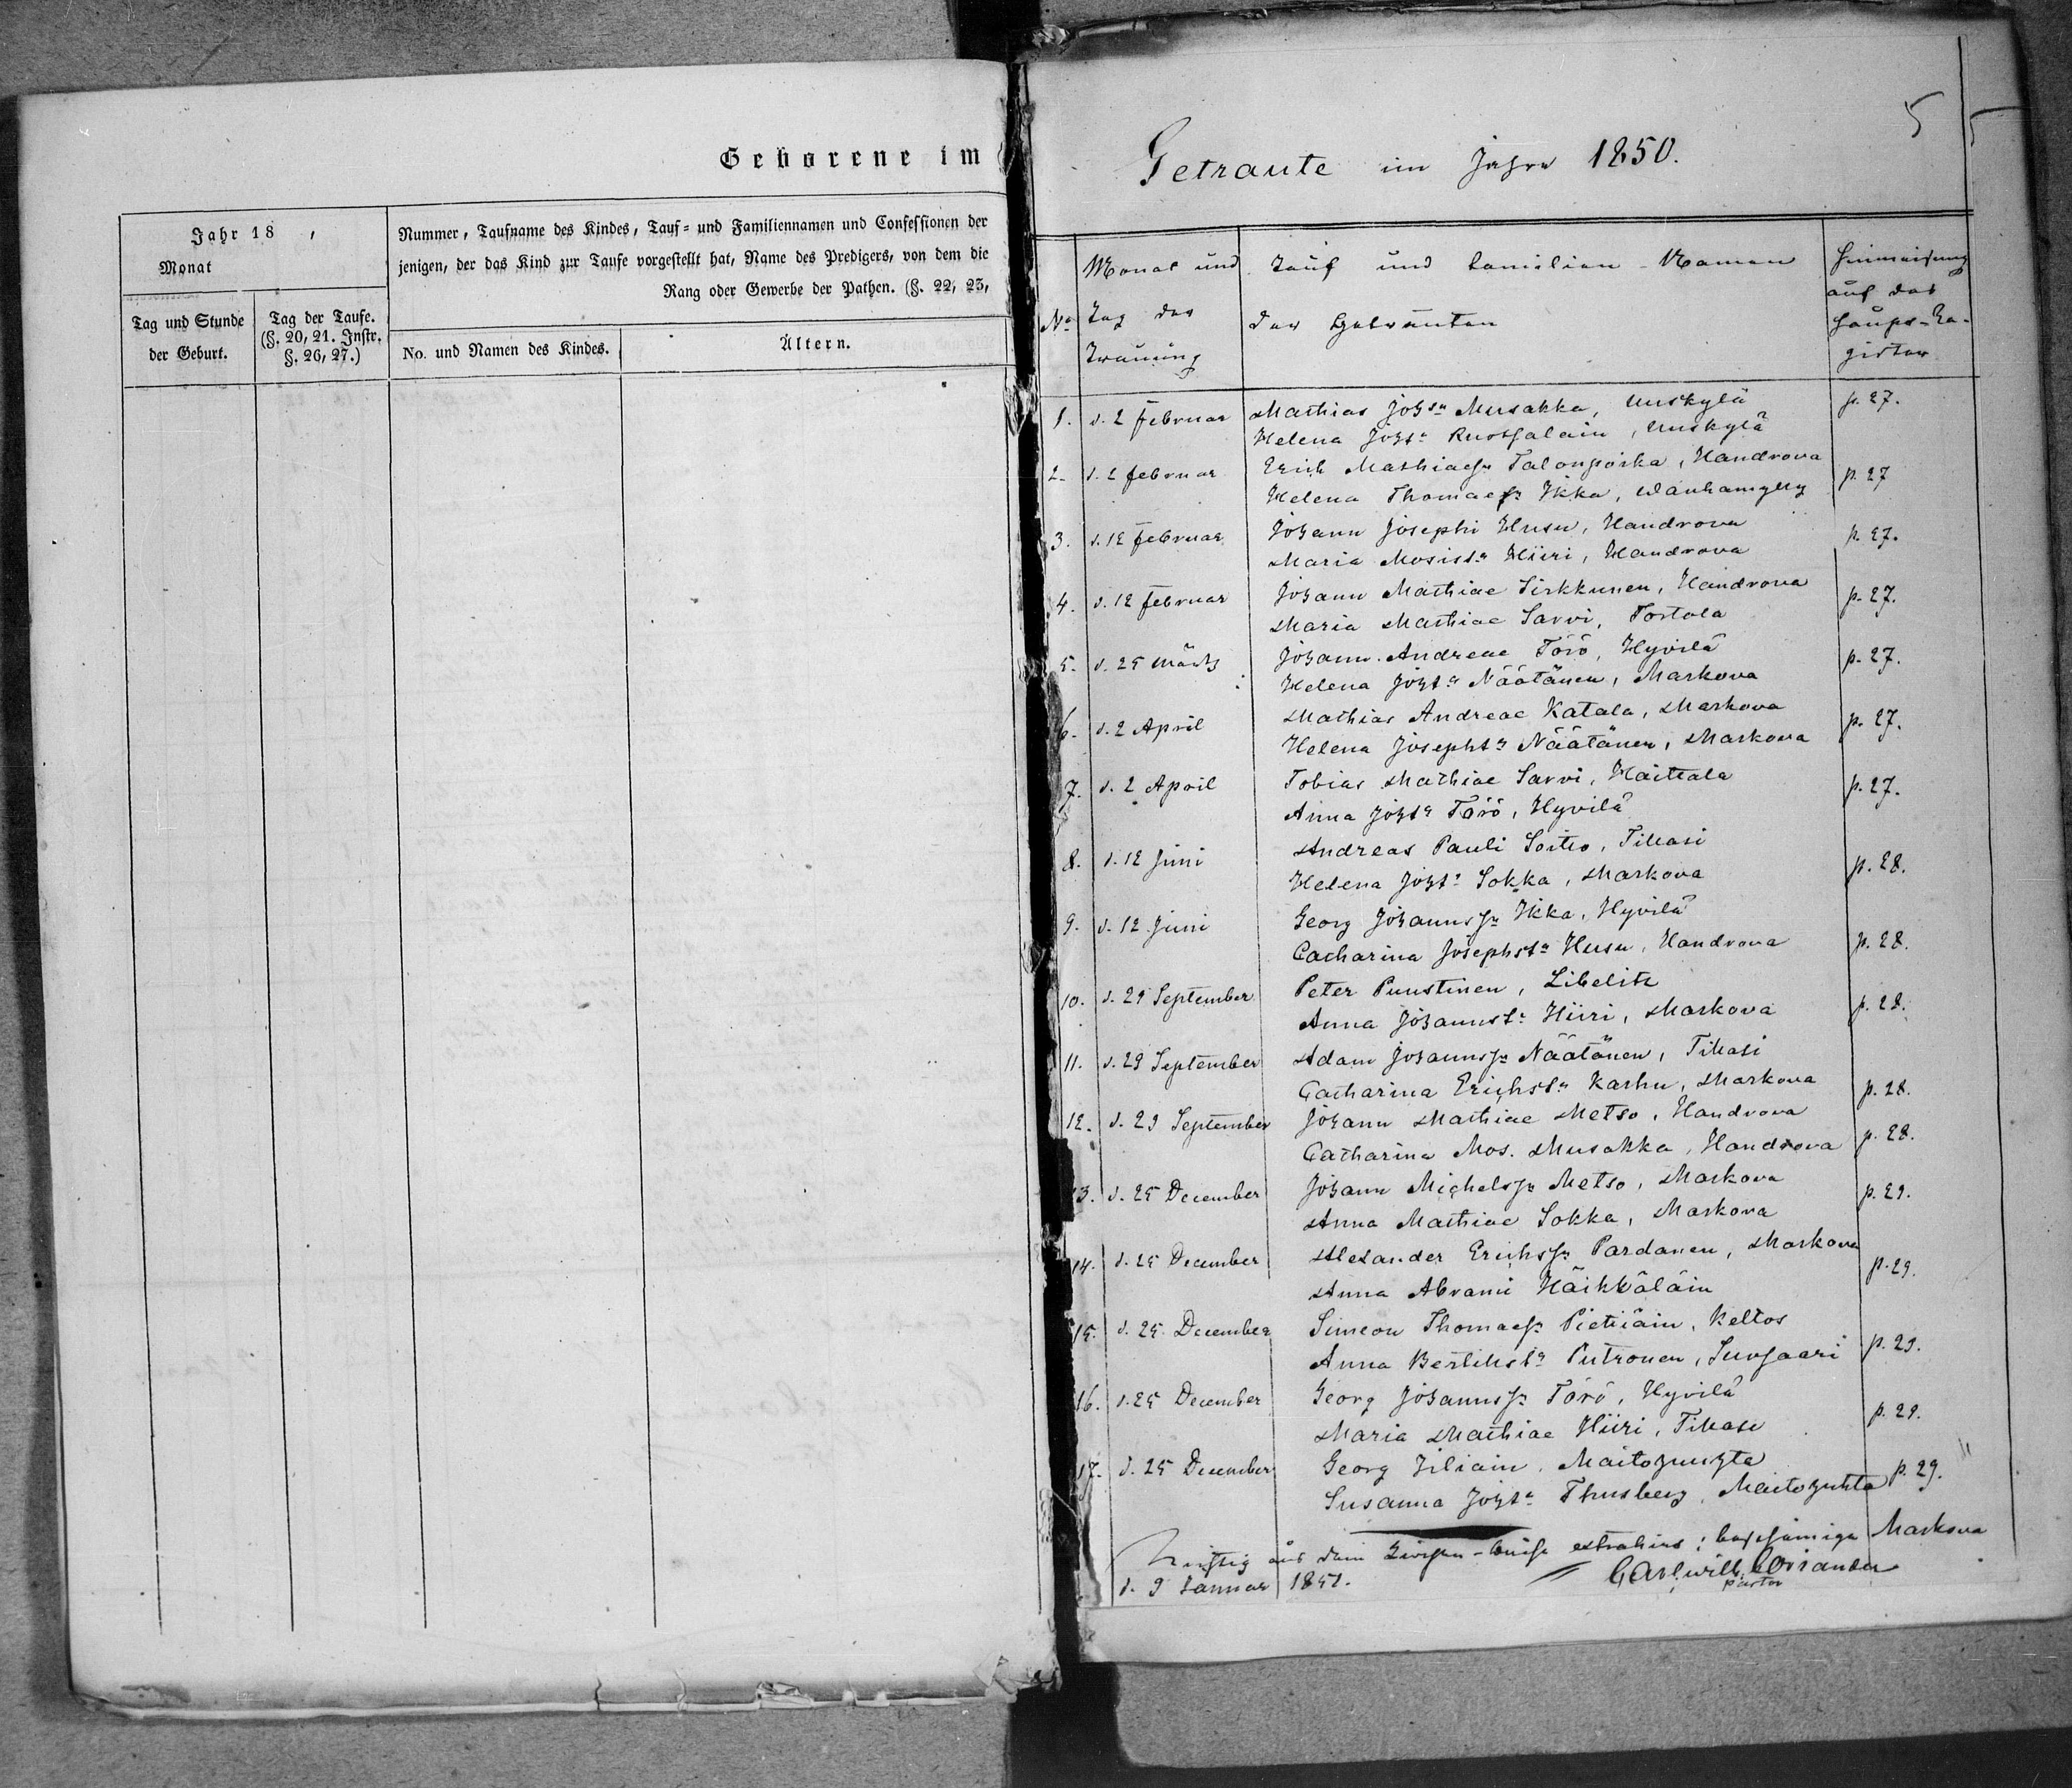 Geborene im
Jahr 18 ,
Monat
Tag und Stunde
der Geburt.
Tag der Taufe.
(§. 20, 21. Instr.
§. 26, 27.)
Nummer, Taufname des Kindes, Tauf- und Familiennamen und Confessionen der
jenigen, der das Kind zur Taufe vorgestellt hat, Name des Predigers, von dem die
Rang oder Gewerbe der Pathen. (§. 22, 23,
No. und Namen des Kindes.
Ältern.
5
5
Getraute im Jahre 1850.
No
Monat und
Tag der
Trauung
Tauf und Familien-Namen
der Getrauten
Hinweisung
auf das
Haupt-Re-
gister
1. d. 2 Februar Mathias Johsn Musakka, Uuskylä p. 27.
Helena Johst. Ruotsalain, Uuskylä
2. d. 2 Februar Erich Mathiaesn Talonpoika, Handrova p. 27
Helena Thomaes Ikka,
3. d. 12 Februar Johann Josephi Husu, Handrova p. 27.
Maria Mosist. Hiiri, Handrova
4. d. 12 Februar Johann Mathiae Sirkkunen, Handrova p. 27.
Maria Mathiae Sarvi, Tortola
5. d. 25 Märtz Johann. Andreae Törö, Hyvilä p. 27.
Helena Johst. Näätänen, Markova
6. d. 2 April Mathias Andreae Katala, Markova p. 27.
Helena Josephst. Näätänen, Markova
7. d. 2 April Tobias Mathiae Sarvi, Haitala p. 27.
Anna Johst. Törö, Hyvilä
8. d. 12 Juni Andreas Pauli Soitto, Tikasi p. 28.
Helena Johst. Sokka, Markova
9. d. 12 Juni Georg Johannssn Ikka, Hyvilä p. 28.
Catharina Josephst. Husu, Handrova
10. d. 29 September Peter Puustinen, Libelitz p. 28.
Anna Johannst. Hiiri, Markova
11. d. 29 September Adam Johannssn Näätänen, Tikasi p. 28.
Catharina Erichst. Karhu, Markova
12. d. 29 September Johann Mathiae Metso, Handrova p. 28.
Catharina Mos. Musakka, Handrova
13. d. 25 December Johann Michelssn Metso, Markova p. 29.
Anna Mathiae Sokka, Markova
14. d. 25 December Alexander Erichssn Pardanen, Markova p. 29.
Anna Abrami Häikkäläin
15. d. 25 December Simeon Thomaes Pietiäin, Keltos p. 29.
Anna Bertilst. Putronen, Suosaari
16. d. 25 December Georg Johannssn Törö, Hyvilä p. 29.
Maria Mathiae Hiiri, Tikasi
17. d. 25 December Georg Iiliäin, Maitohuhta p. 29.
Susanna Johst. Thusberg, Maitohuhta
Richtig aus dem Kirchen-Buche extrahirt; bescheinige Markova
d. 9 Januar 1851. Carl Wilh. Coriander
Pastor